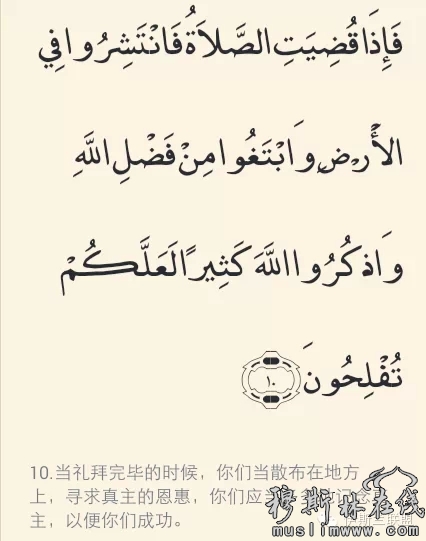 فَإِذَا قُضِيَتِ الصَّلَاةُ فَانْتَشِرُوا فِي
الْأَرْضِ وَابْتَغُوا مِنْ فَضْلِ اللَّهِ
وَاذْكُرُوا اللَّهَ كَثِيرًا لَعَلَّكُمْ
تُفْلِحُونَ ١٠
10.当礼拜完毕的时候，你们当散布在地方
上，寻求真主的恩惠，你们应
主，以便你们成功。
穆斯林在线
muslimwww.com